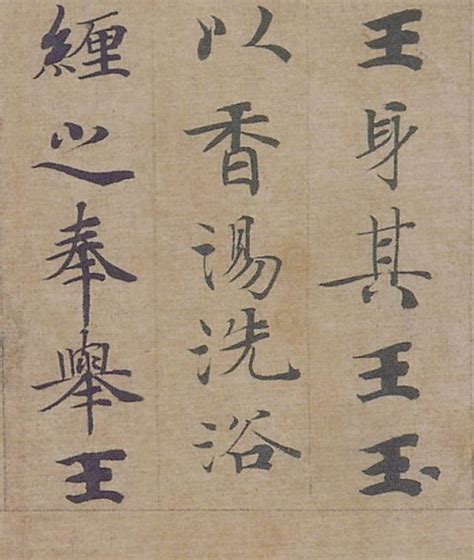 王身其王玉
以香湯洗浴
纒之奉舉王